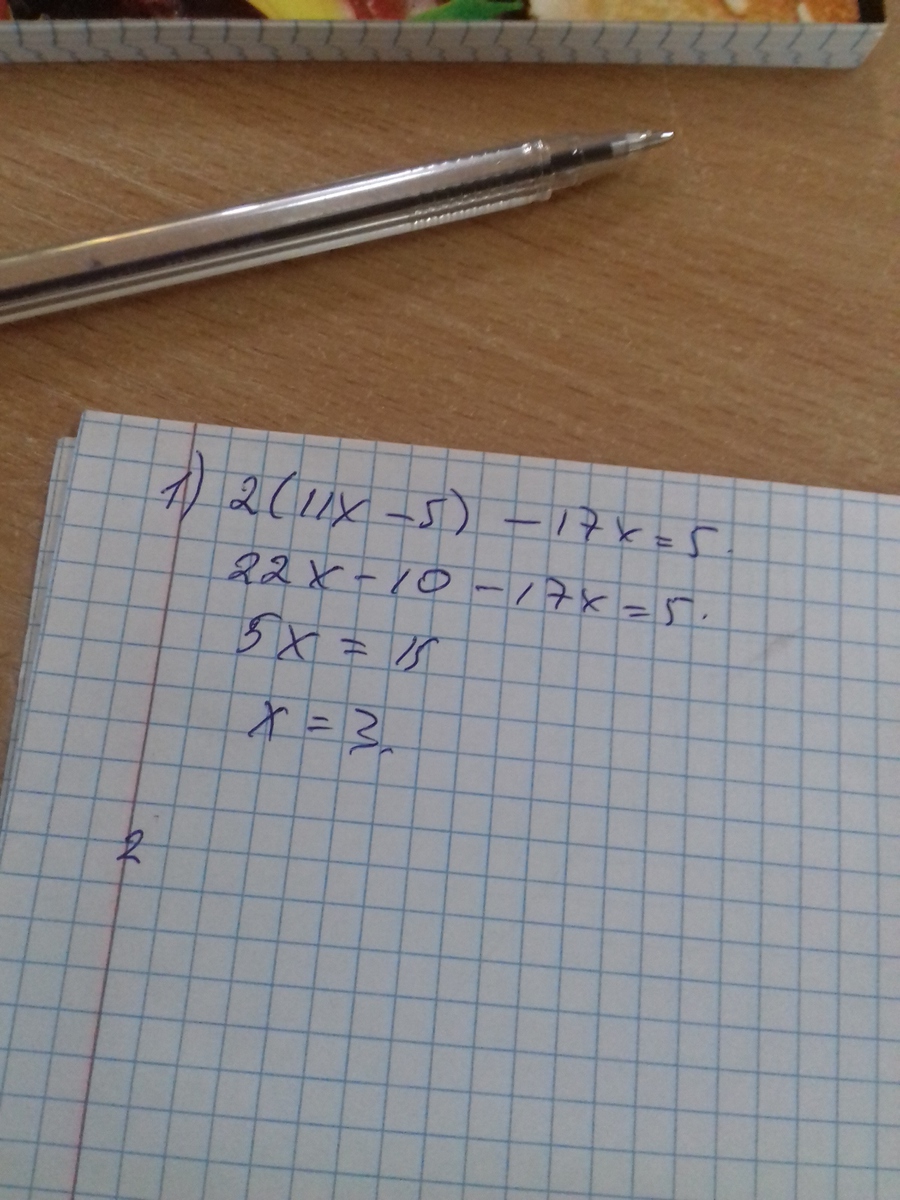 1) 2(11x - 5) - 17x = 5.
22x - 10 - 17x = 5.
5x = 15
x = 3.
2